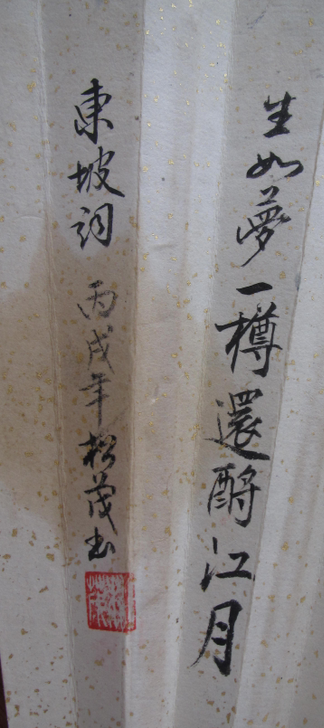 生如夢一樽還酹江月
東坡詞 丙戌年松茂书